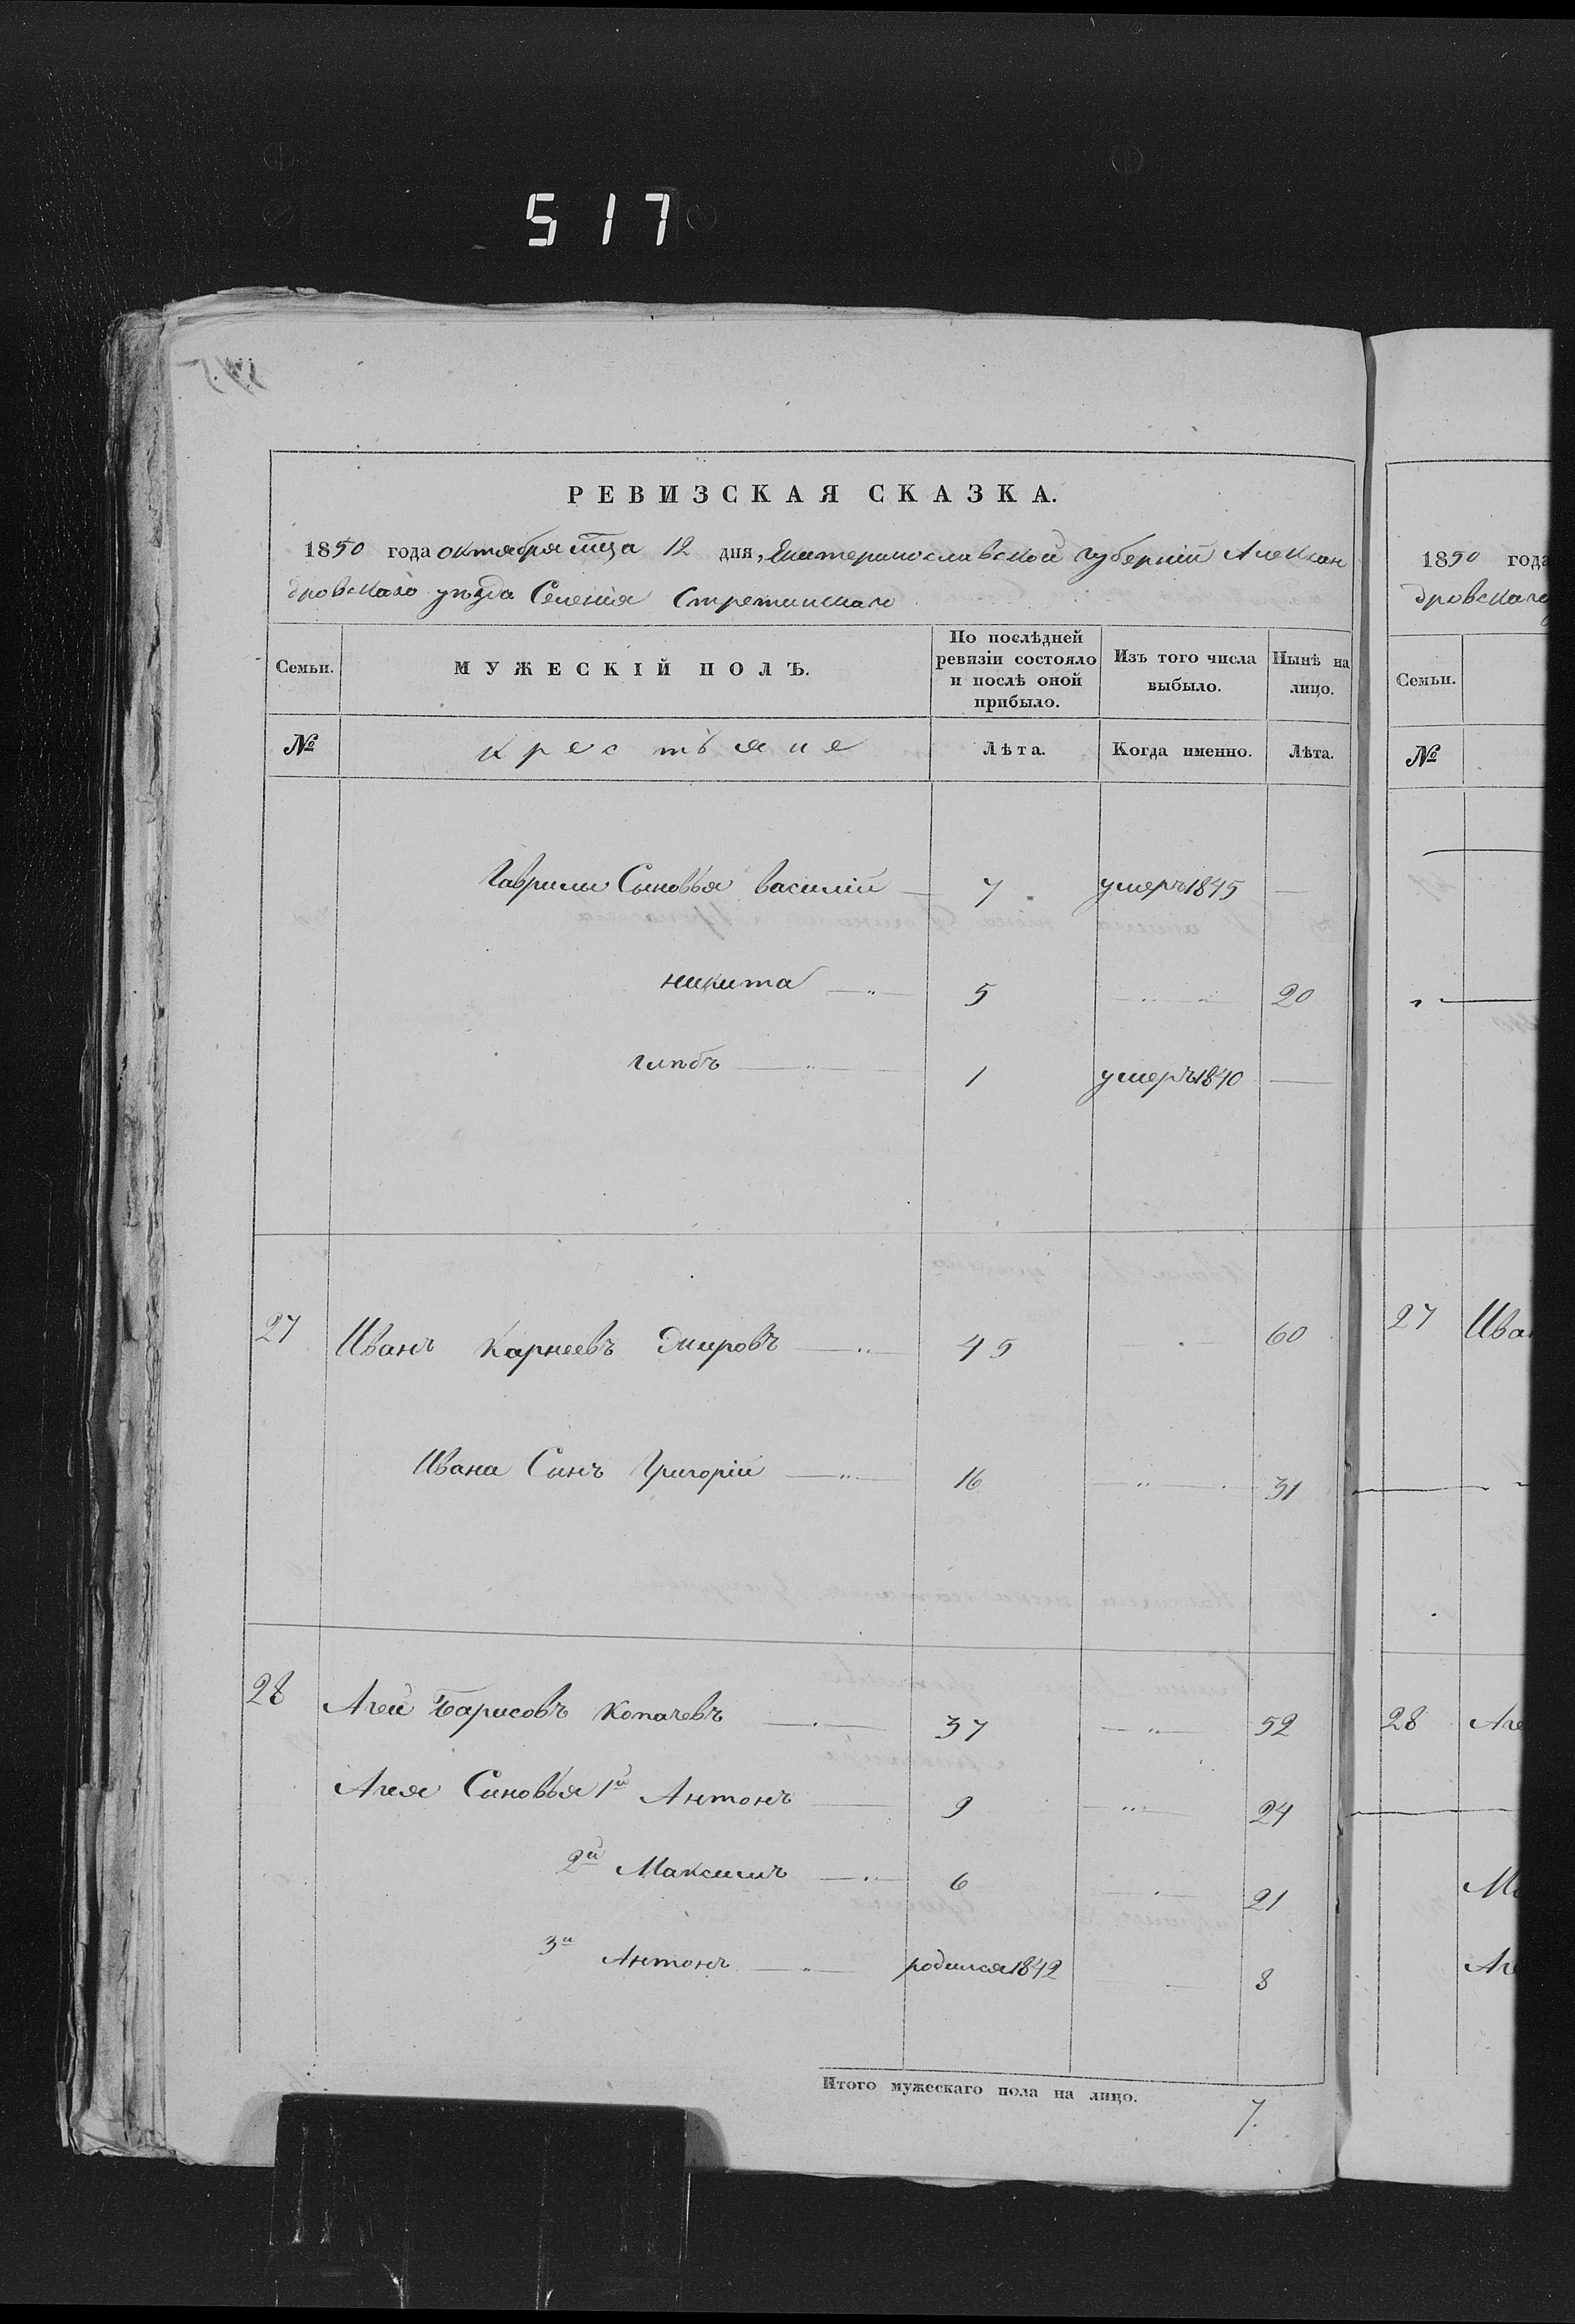 517
РЕВИЗСКАЯ СКАЗКА.
1850 года октября мца 12 дня, Екатеринославской губерніи Алексан
дровского уезда Селенія Стретинскаго
Семьи. МУЖЕСКІЙ ПОЛЪ. По послѣдней ревизіи состояло и послѣ оной прибыло. Изъ того числа выбыло. Нынѣ на лицо.
№ крестьяне Лѣта. Когда именно. Лѣта.
Гаврилы Сыновья василій — 7 умеръ 1845 —
никита — 5 — 20
глѣбъ — 1 умеръ 1840 —
27 Иванъ Карнеевъ — 45 60
Ивана Сынъ Григорій — 16 — 31
28 Агей Барисовъ Копачевъ — 37 — 52
Агея Сыновья 1й Антонъ — 9 — 24
2й Максимъ — 6 — 21
3й Антонъ — родился 1842 — 8
Итого мужескаго пола на лицо. 7.
1850 года
дровскаго
Семьи.
№
27 Иван
28 Аге
Ма
Аг